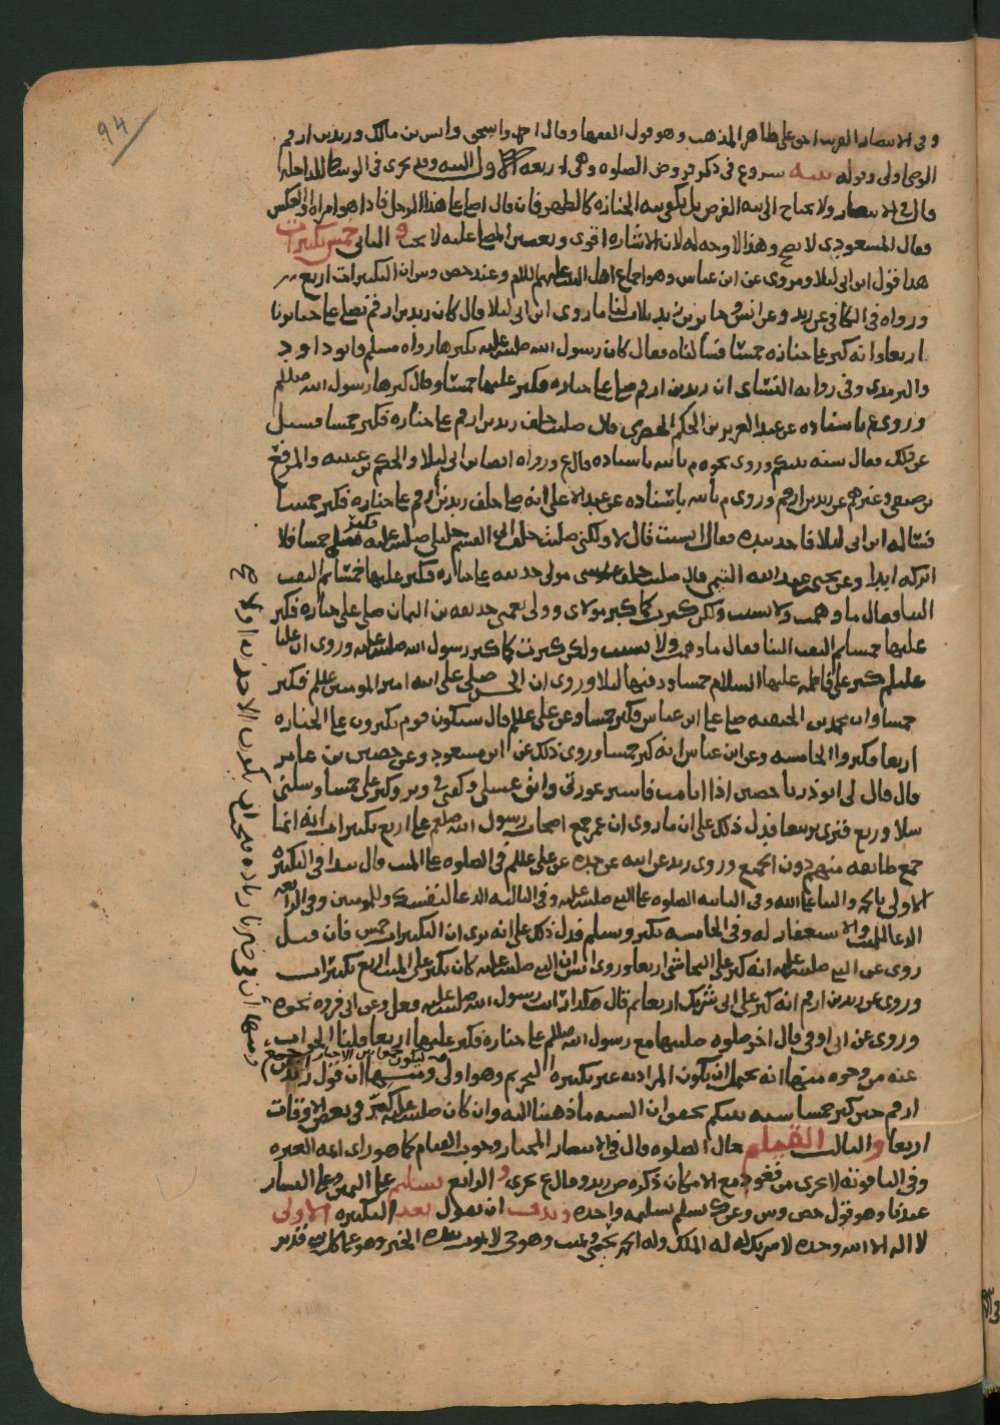 94
وفي الانتصار القريب احق على ظاهر المذهب وهو قول الفقها وقال احمد واسحق وانس بن مالك وزيد بن ارقم
الوصي اولى وقوله نيه شروع في ذكر فروض الصلوه وهي اربعه الاول النيه وقد تجزى في الوسط للداخل
قال في الانتصار ولا يحتاج الى نيه الفرض بل يكفي نيه الجنازه كالظهر فان قال اصلي على هذا الرجل فاذا هو امراه او العكس
فقال المسعودي لا تصح وهذا لا وجه له لان الاشاره اقوى وتعيين المصلى عليه لا يجب والثاني خمس تكبيرات
هذا قول ابن ابي ليلا ومروي عن ابن عباس وهو اجماع اهل البيت عليهم السلام وعند حص وش ان التكبيرات اربع
ورواه في الكافي عن زيد وعن انس وجابر بن زيد ثلاث لنا ما روى ابن ابي ليلا قال كان زيد بن ارقم يصلي على جنايزنا
اربعا وانه كبر على جنازه خمسا فسالناه فقال كان رسول الله صلى الله عليه يكبرها رواه مسلم وابو داود
والترمذي وفي روايه النساى ان زيد بن ارقم صلى على جنازه فكبر عليها خمسا وقال كبرها رسول الله صللم
وروى م باسناده عن عبد العزيز بن الحكم الحضرمي قال صليت خلف زيد بن ارقم على جنازه فكبر خمسا فسيل
عن ذلك فقال سنه نبيكم وروى نحوه م بالله باسناده قال ع ورواه ايضا ابن ابي ليلا والحكم بن عيينه والمرقع
بن صيفي وغيرهم عن زيد بن ارقم وروى م بالله باسناده عن عبد الاعلى انه صلى خلف زيد بن ارقم على جنازه فكبر خمسا
فساله ابن ابي ليلا فاخذ بيده فقال انسيت قال لا ولكني صليت خلف ابي القسم خليلي صلى الله عليه فكبر خمسا فلا
اتركه ابدا وعن يحيى بن عبد الله التيمي قال صليت خلف عيسى مولى حذيفه على جنازه فكبر عليها خمسا ثم التفت
الينا فقال ما وهمت ولا نسيت ولكن كبرت كما كبر مولاي وولي نعمتي حذيفه بن اليمان صلى على جنازه فكبر
عليها خمسا ثم التفت الينا فقال ما وهمت ولا نسيت ولكن كبرت كما كبر رسول الله صلى الله عليه وروي ان عليا
عليلم كبر على فاطمه عليها السلام خمسا ودفنها ليلا وروي ان الحسن صلى على ابيه امير المومنين عللم فكبر
خمسا وان محمد بن الحنفيه صلى على ابن عباس فكبر خمسا وعن علي عللم قال سيكون قوم يكبرون على الجنازه
اربعا فكبروا الخامسه وعن ابن عباس انه كبر خمسا وروي ذلك عن ابن مسعود وعن حصين بن عامر
قال قال لي ابو ذر يا حصين اذا انا مت فاستر عورتي وانق غسلي وكفني في وتر وكبر علي خمسا وسلني
سلا وربع قبري تربيعا فدل ذلك على ان ما روي ان عمر جمع اصحاب رسول الله صلعم على اربع تكبيرات انه انما
جمع طايفه منهم دون الجميع وروى زيد عن ابيه عن جده عن علي عللم في الصلوه على الميت قال تبدا في التكبيره
الاولى بالحمد والثنا على الله وفي الثانيه الصلوه على النبي صلى الله عليه وفي الثالثه الدعا لنفسك وللمومنين وفي الرابعه
الدعا للميت والاستغفار له وفي الخامسه تكبر وتسلم فدل ذلك على انه يرى ان التكبيرات خمس فان قيل
روي عن النبي صلى الله عليه انه كبر على النجاشي اربعا وروى انس ان النبي صلى الله عليه كان يكبر على الميت اربع تكبيرات
وروي عن زيد بن ارقم انه كبر على ابي شريك اربعا ثم قال هكذا رايت رسول الله صلى الله عليه فعل وعن ابي فروه نحوه
وروي عن ابي اوفى قال اخر صلوه صليتها مع رسول الله صللم على جنازه فكبر عليها اربعا قلنا الجواب
عنه من وجوه منها انه يحتمل ان يكون المراد به غير تكبيره التحريم وهو اولى ومنها ان قول زيد بن
ارقم حين كبر خمسا سنه نبيكم يحقق ان السنه ما ذهبنا اليه وان كان صلى الله عليه كبر في بعض الاوقات
اربعا والثالث القيام حال الصلوه قال في الانتصار المختار وجوب القيام كما هو راى ايمه العتره
وفي الياقوته لا يجزى من قعود مع الامكان ذكره ص بزيد وقال ع يجزى والرابع تسليم على اليمين وعلى اليسار
عندنا وهو قول حص وش وعن ك يسلم تسليمه واحده وندب ان يقول بعد التكبيره الاولى
لا اله الا الله وحده لا شريك له له الملك وله الحمد يحيي ويميت وهو حي لا يموت بيده الخير وهو على كل شي قدير